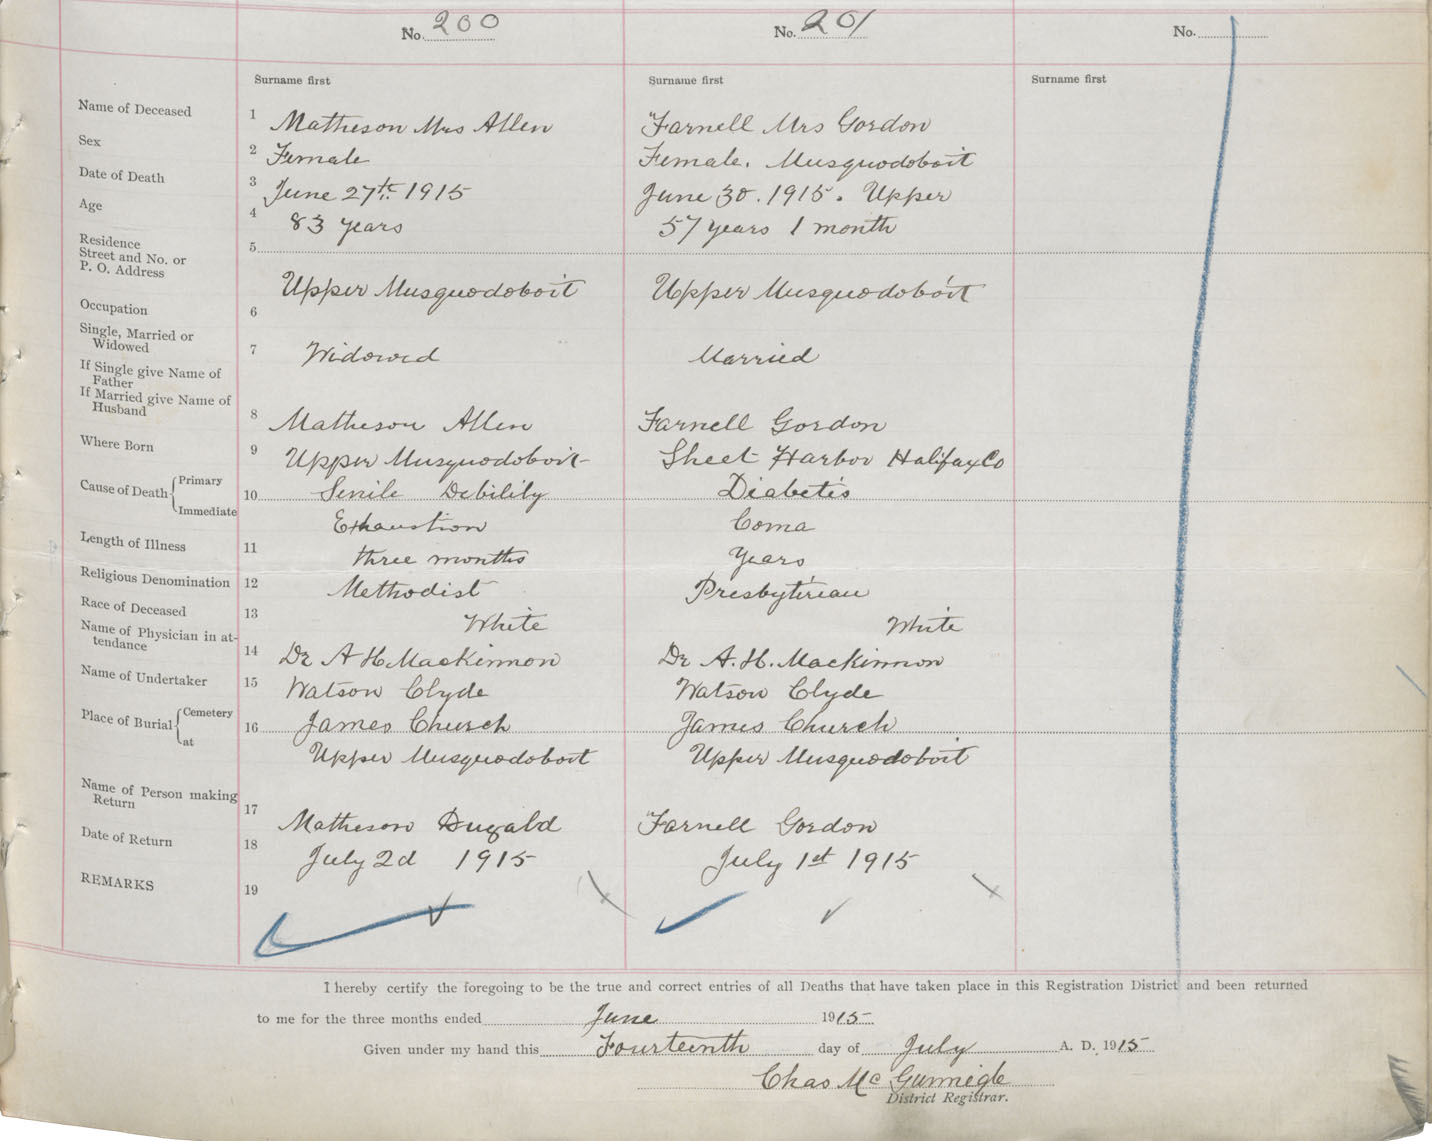 No. 200 No. 201 No.
Surname first Surname first Surname first
Name of Deceased 1 Matheson Mrs Allen Farnell Mrs Gordon
Sex 2 Female Female. Musquodoboit
Date of Death 3 June 27th. 1915 June 30. 1915. Upper
Age 4 83 years 57 years 1 month
Residence
Street and No. or
P. O. Address 5 Upper Musquodoboit Upper Musquodoboit
Occupation 6
Single, Married or
Widowed 7 Widowed Married
If Single give Name of
Father
If Married give Name of
Husband 8 Matheson Allen Farnell Gordon
Where Born 9 Upper Musquodoboit Sheet Harbor Halifax Co
Cause of Death Primary 10 Senile Debility Diabetis
Immediate Exhaustion Coma
Length of Illness 11 three months Years
Religious Denomination 12 Methodist Presbyterian
Race of Deceased 13 White White
Name of Physician in at-
tendance 14 Dr A H. MacKinnon Dr A. H. MacKinnon
Name of Undertaker 15 Watson Clyde Watson Clyde
Place of Burial Cemetery 16 James Church James Church
at Upper Musquodoboit Upper Musquodoboit
Name of Person making
Return 17 Matheson Dugald Farnell Gordon
Date of Return 18 July 2d 1915 July 1st 1915
REMARKS 19
I hereby certify the foregoing to be the true and correct entries of all Deaths that have taken place in this Registration District and been returned
to me for the three months ended June 1915
Given under my hand this Fourteenth day of July A. D. 1915
Chas Mc Gunnigle
District Registrar.